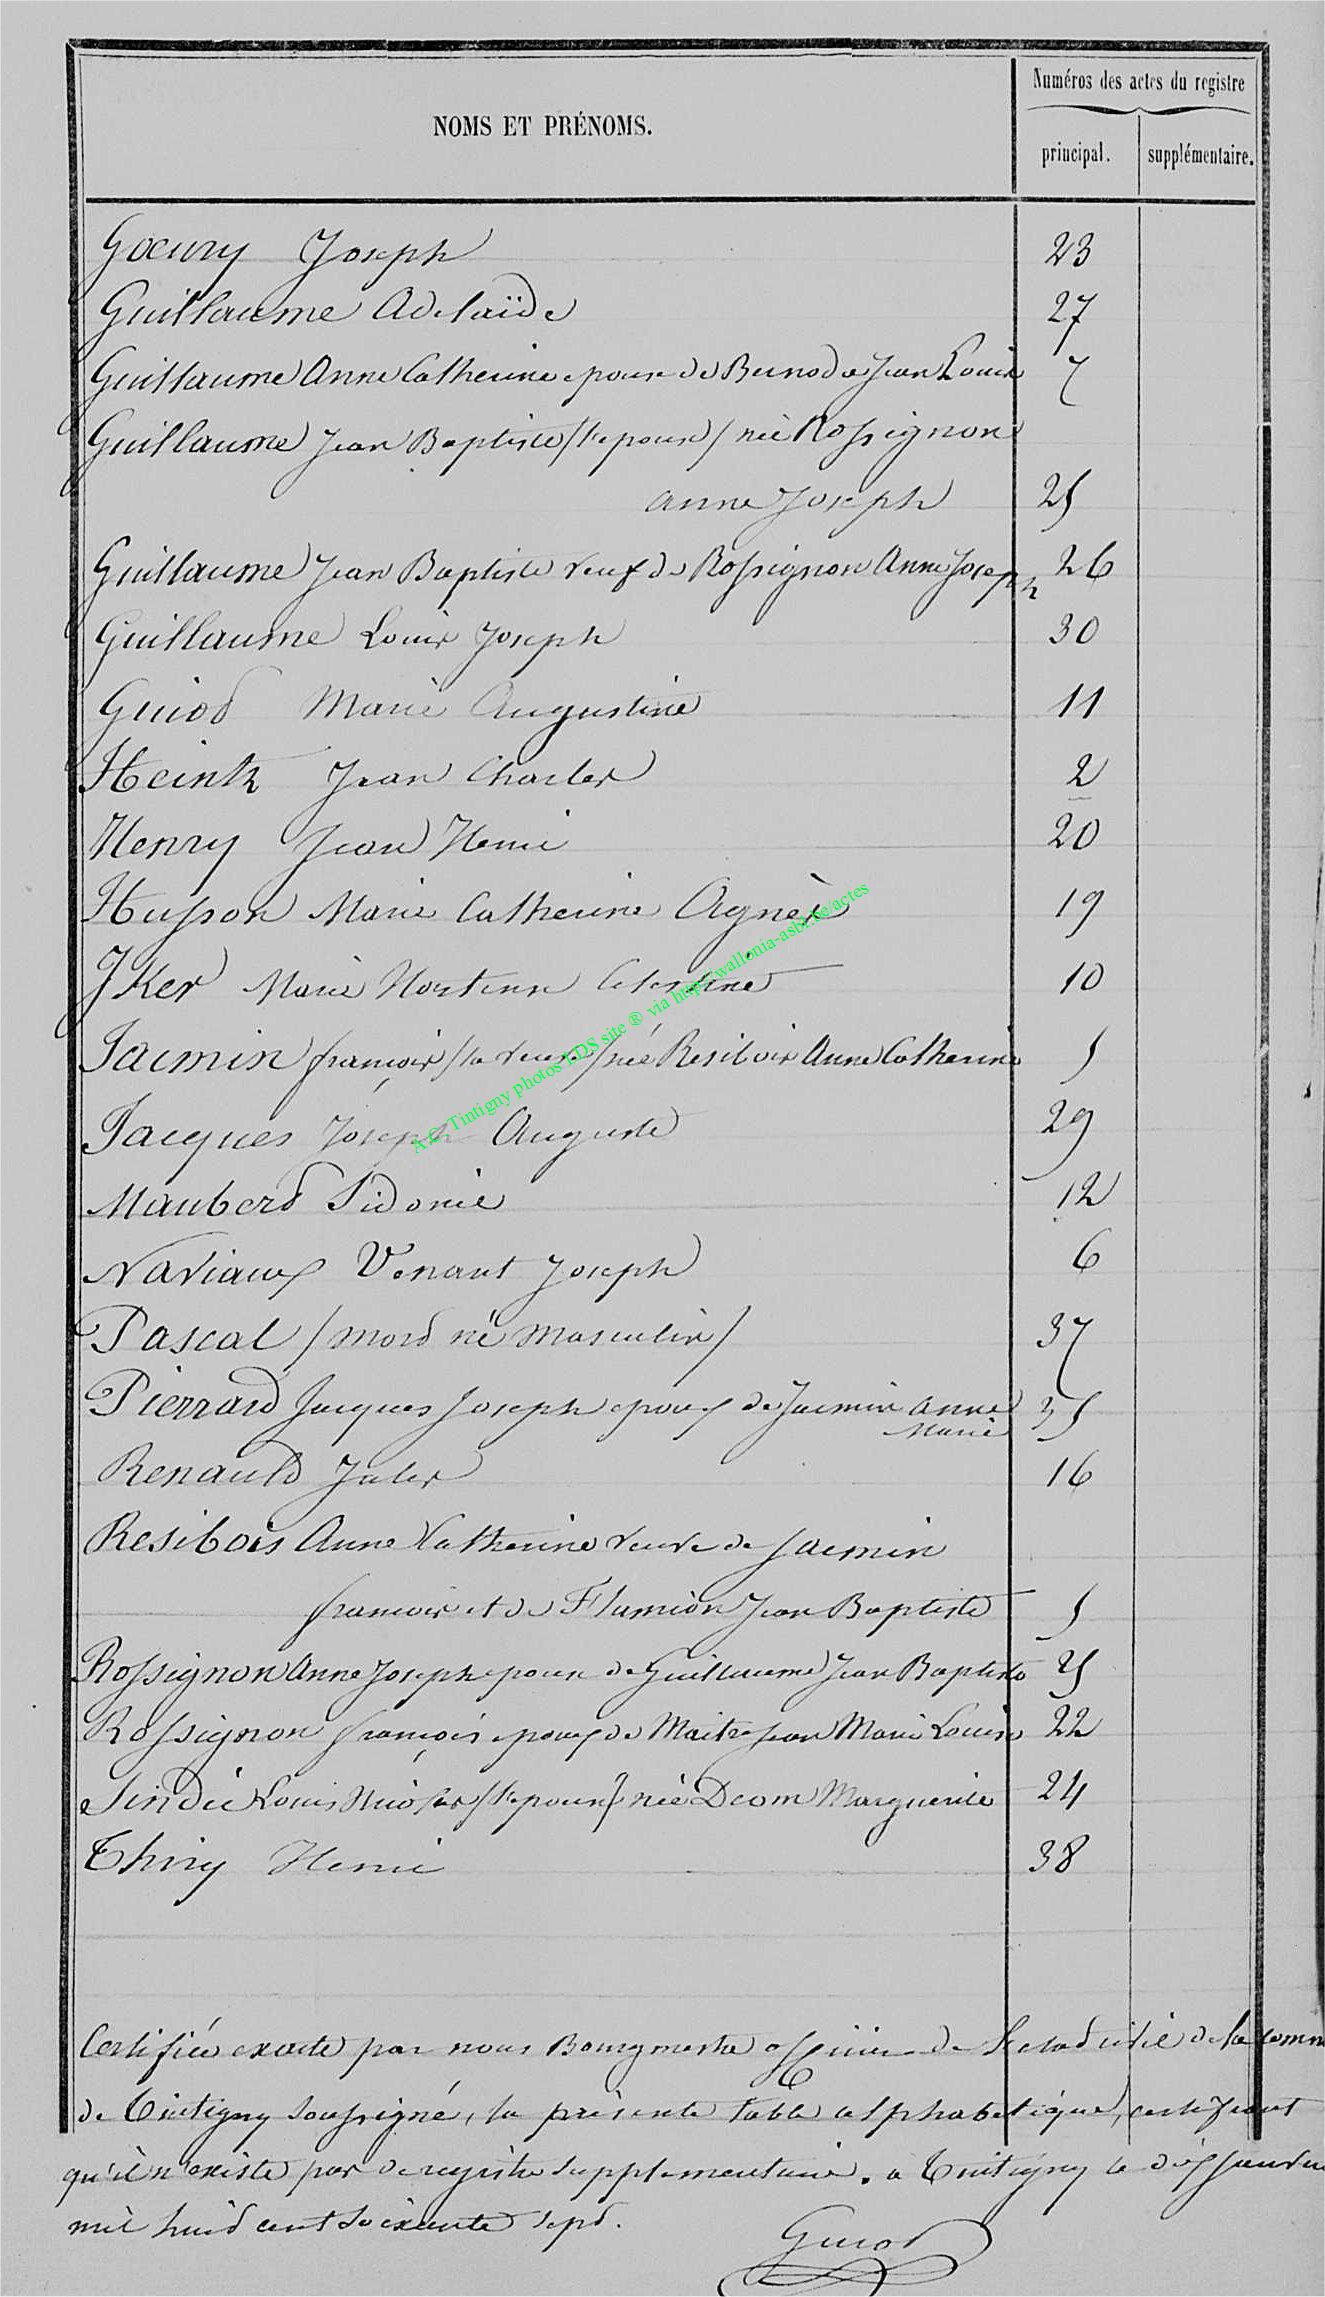 Numéros des actes du registre
NOMS ET PRÉNOMS.
principal. supplémentaire.
Goeury Joseph 23
Guillaume Adelaïde 27
Guillaume Anne Catherine epouse de Bernode Jean Louis 7
Guillaume Jean Baptiste (l'epouse) née Rossignon
Anne Joseph 25
Guillaume Jean Baptiste veuf de Rossignon Anne Joseph 26
Guillaume Louis Joseph 30
Guiod Marie Augustine 11
Heintz Jean Charles 2
Henry Jean Henri 20
Husson Marie Catherine Agnès 19
JKer Marie Hortense Celestine 10
Jacmin françois (la veuve) née Resibois Anne Catherine 5
Jacques Joseph Auguste 29
Mauberd Sidonie 12
Naviaux Venant Joseph 6
Pascal (mord né masculin) 37
Pierrard Jacques Joseph epoux de Jacmin Anne 35
Marie
Renauld Jules 16
Resibois Anne Catherine veuve de Jacmin
françois et de Flamion Jean Baptiste 5
Rossignon Anne Joseph epouse de Guillaume Jean Baptiste 25
Rossignon françois epoux de Maitrejean Marie Louise 22
Sindic Louis Nicolas (l'epouse) née Deom Marguerite 24
Thiry Henri 38
Certifiée exacte par nous Bourgmestre officier de l'etad civil de la comm
de Tintigny soussigné, la présente table alphabetique, certifiant
qu'il n'existe pas de registre supplementaire. a Tintigny le dix janvier
mil huid cent soixante sept.
Guiod
A.C. Tintigny photos LDS site ® via http://wallonia-asbl.be/actes